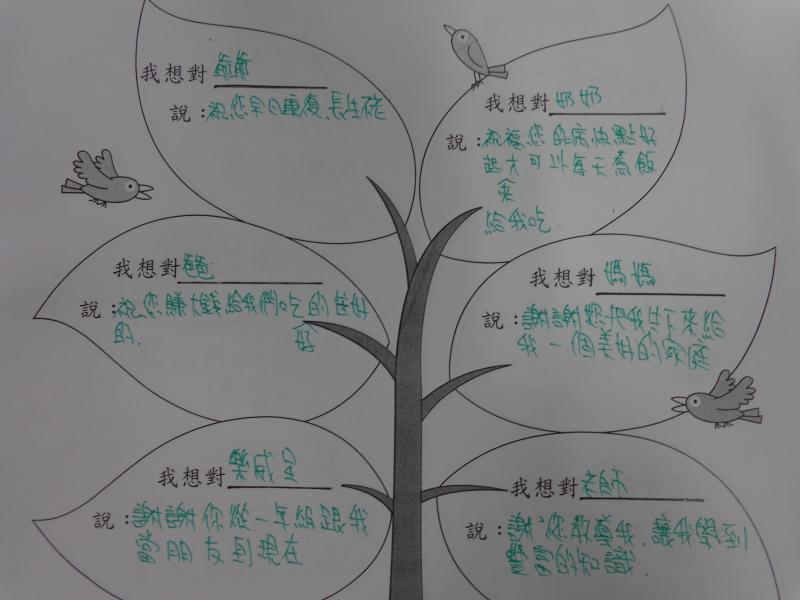 我想對爺爺
說：祝您早日康復、長生佬
我想對奶奶
說：祝福您的病快點好
起才可以每天煮飯
來
給我吃
我想對爸爸
說：祝您賺大錢給我們吃的住好
的.
好
我想對媽媽
說：謝謝您把我生下來給
我一個美好的家庭
我想對 威
說：謝謝你從一年級跟我
當朋友到現在
我想對老師
說：謝您教導我.讓我學到
的知識.